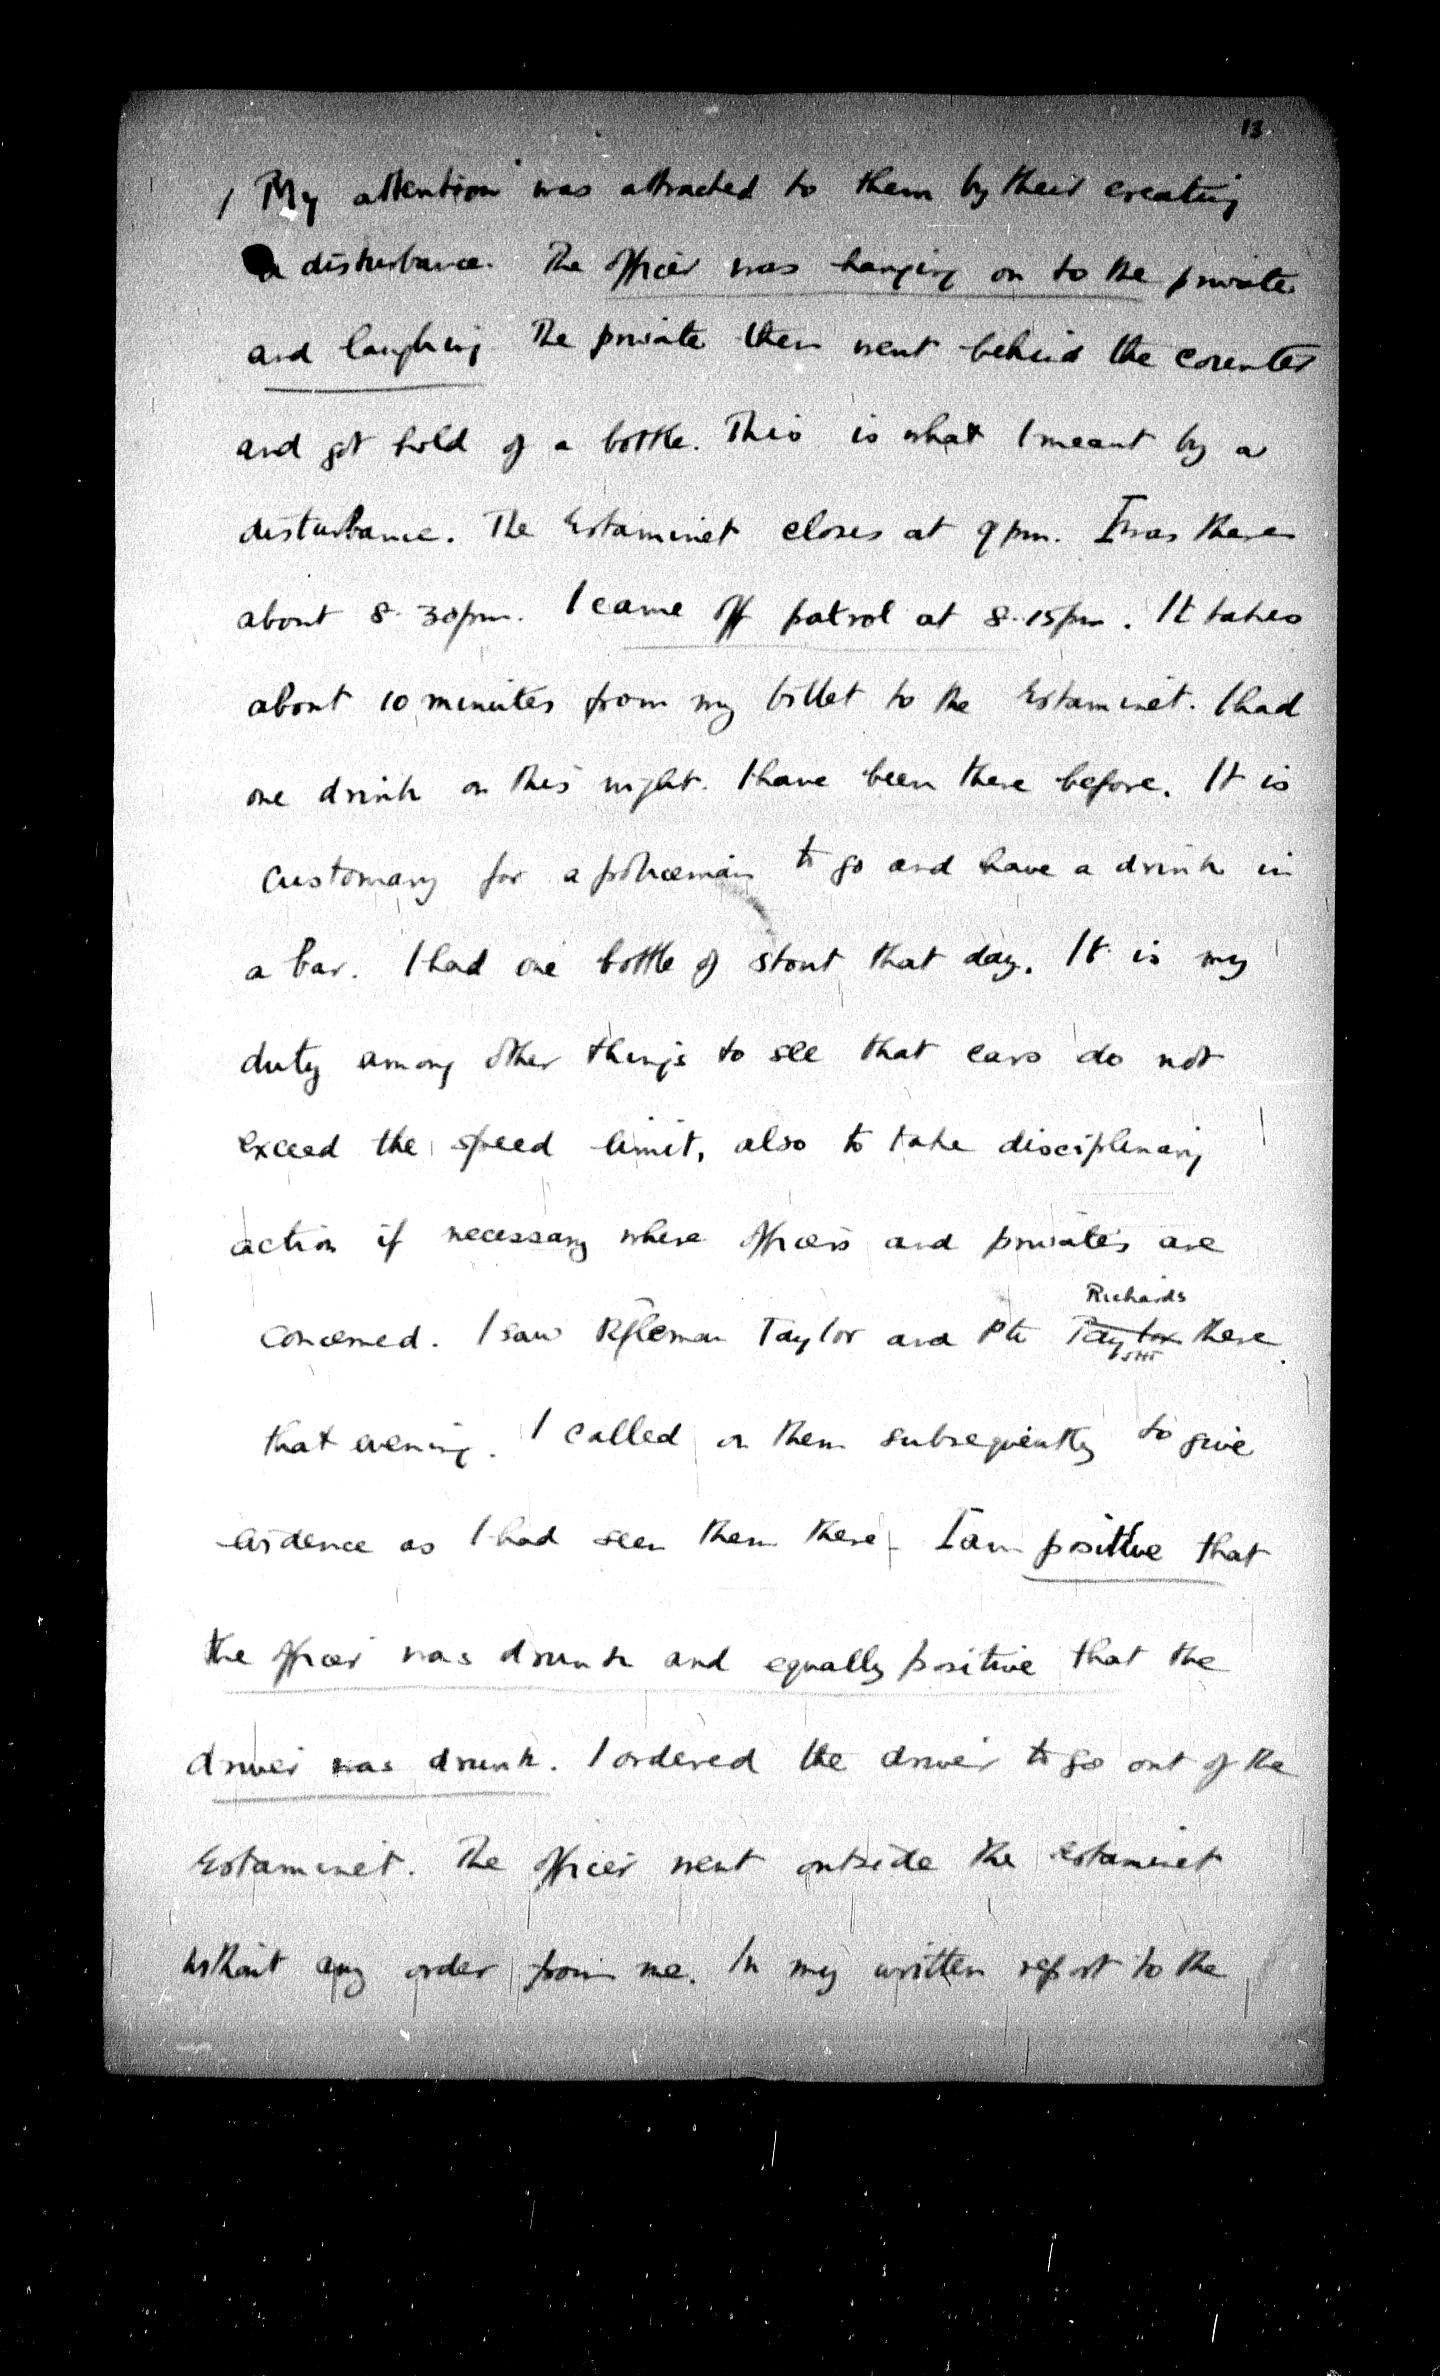 13
My attention was attracted to them by their creating
a disturbance. The officer was hanging on to the private
and laughing The private then went behind the counter
and got hold of a bottle. This is what I meant by a
disturbance. The Estaminet closes at 9 pm. I was there
about 8.30pm. I came off patrol at 8.15pm. It takes
about 10 minutes from my billet to the Estaminet. I had
one drink on this night. I have been there before. It is
customary for a policeman to go and have a drink in
a bar. I had one bottle of stout that day. It is my
duty among other things to see that cars do not
exceed the speed limit, also to take disciplinary
action if necessary where officers and privates are
Richards
concerned. I saw Rifleman Taylor and Pte Taylor there
that evening. I called on them subsequently to give
evidence as I had seen them there - I am positive that
the officer was drunk and equally positive that the
driver was drunk. I ordered the driver to go out of the
Estaminet. The officer went outside the estaminet
without any order from me. In my written report to the